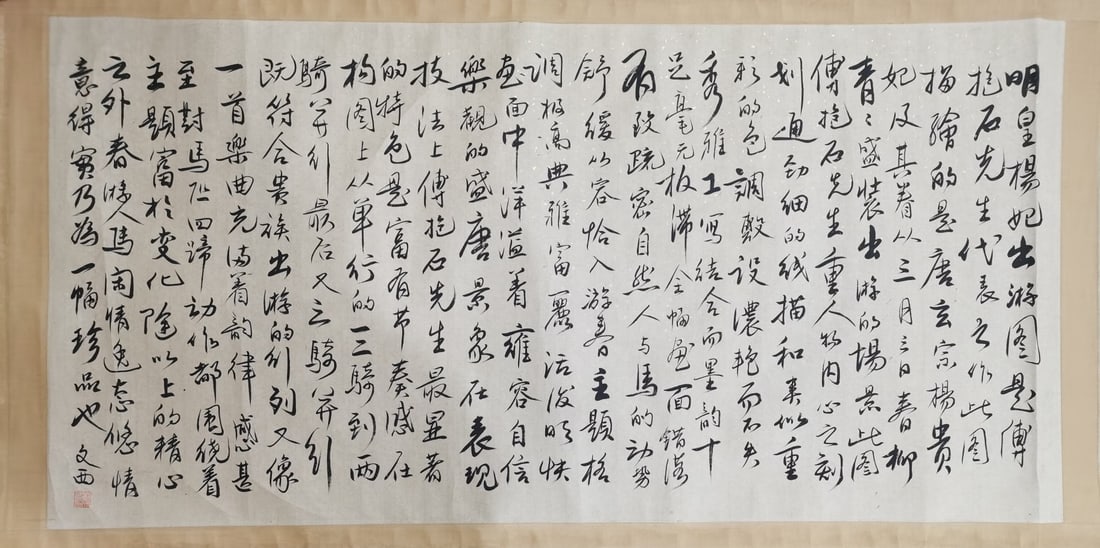 明皇楊妃出游图是傅
抱石先生代表之作此图
描繪的是唐玄宗楊貴
妃及其眷从三月三日春柳
青青盛装出游的場景此图
傅抱石先生重人物内心之刻
划通劲细的线描和类似重
彩的色調敷设濃艳而不失
秀雅工写结合而墨韵十
足毫无板滞全幅画面错落
有致疏密自然人与馬的动势
舒缓从容恰入游春主题格
调极高典雅富麗活泼明快
画面中洋溢着雍容自信
樂觀的盛唐景象在表現
技法上傅抱石先生最显著
的特色是富有节奏感在
构图上从单行的三騎到两
騎并行最后又三騎并行
既符合贵族出游的行列又像
一首樂曲充满着韵律感甚
至對馬匹四蹄动作都围绕着
主題富於变化除以上的精心
之外春游人馬闲情逸态悠情
意得實乃為一幅珍品也 文西